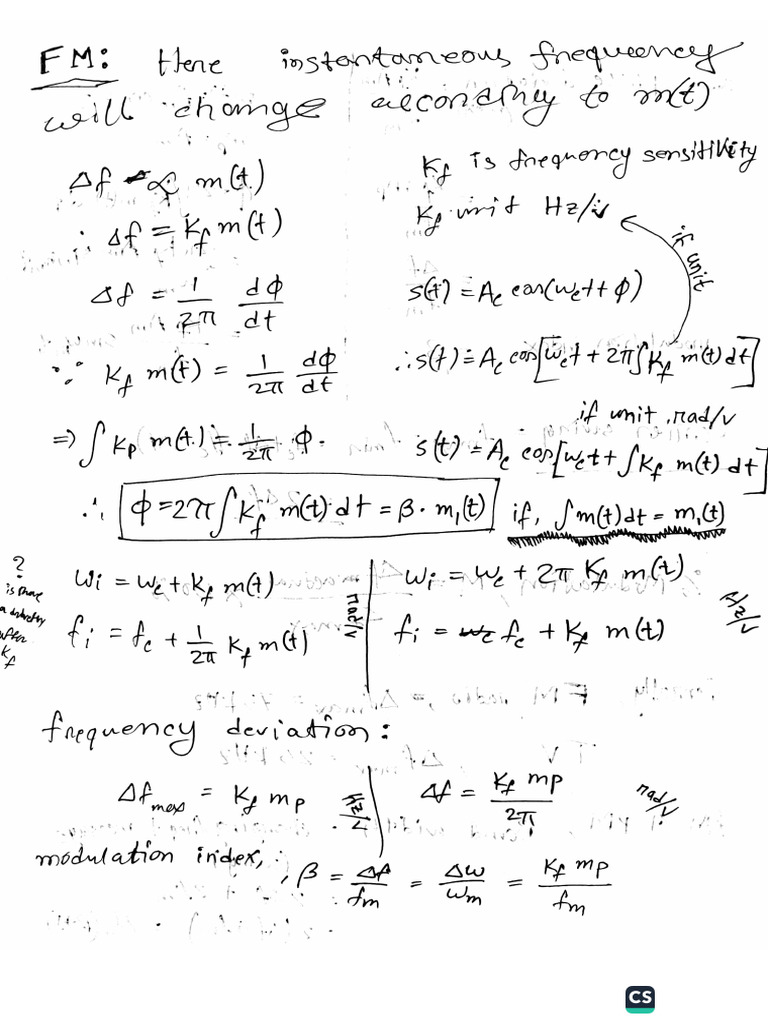 FM: Here instantaneous frequency
will change according to m(t)
Δf ∝ m(t)
∴ Δf = K_f m(t)
Δf = 1/2π dΦ/dt
∵ K_f m(t) = 1/2π dΦ/dt
⇒ ∫ K_p m(t) = 1/2π Φ.
K_f is frequency sensitivity
K_f unit Hz/v
if unit
s(t) = A_c cos(w_c t + Φ)
∴ s(t) = A_c cos[w_c t + 2π∫K_f m(t) dt]
if unit rad/v
s(t) = A_c cos[w_c t + ∫K_f m(t) dt]
∴ Φ = 2π∫K_f m(t)·dt = β·m₁(t)
if, ∫m(t)dt = m₁(t)
?
is there
a
after
K_f
w_i = w_c + K_f m(t)
f_i = f_c + 1/2π K_f m(t)
rad/v
w_i = w_c + 2π K_f m(t)
f_i = f_c + K_f m(t)
Hz/v
frequency deviation:
Δf_max = K_f m_p
Hz/v
Δf = K_f m_p / 2π
rad/v
modulation index,
β = Δf/f_m = Δw/w_m = K_f m_p / f_m
CS